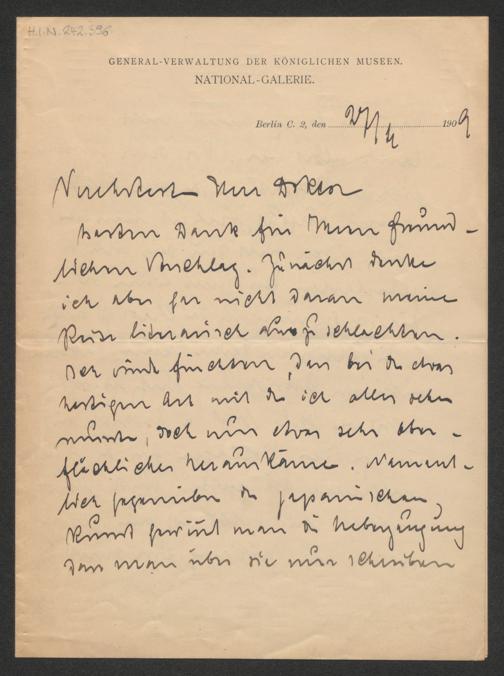 H.I.N. 242.396
GENERAL-VERWALTUNG DER KÖNIGLICHEN MUSEEN.
NATIONAL-GALERIE.
Berlin C. 2, den 27/4 1909
Verehrtester Herr Doktor
besten Dank für Ihren freund-
lichen Vorschlag. Zunächst denke
ich aber gar nicht daran meine
Reise literarisch auszuschlachten.
Ich würde fürchten, dass bei der etwas
hastigen Art mit der ich alles sehen
musste, doch nur etwas sehr ober-
flächliches herauskäme. Nament-
lich gegenüber der japanischen
Kunst gewinnt man die Ueberzeugung
dass man über sie nur schreiben